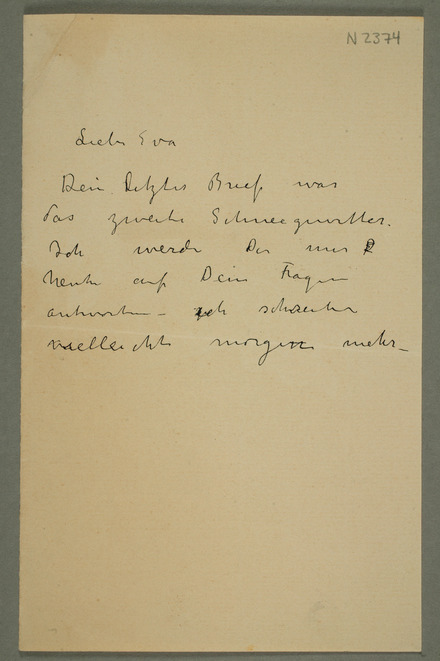 N 2374
Liebe Eva
Dein letztes Brief war
das zweite Schneegewitter.
Ich werde Dir nur
heute auf Dein Fragen
antworten – ich schreibe
vielleicht morgen mehr –